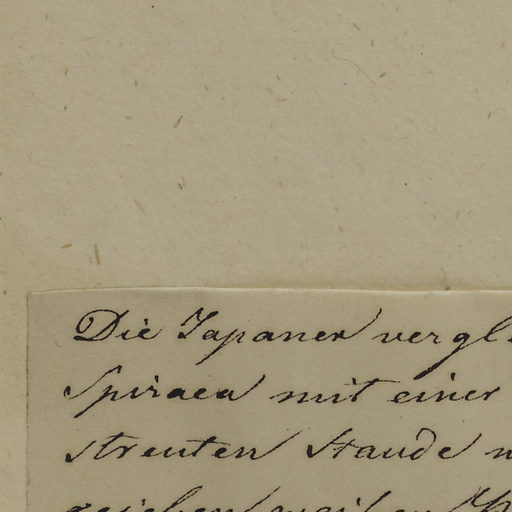 Die Japaner vergl
Spiraea mit einer
streuten Staude